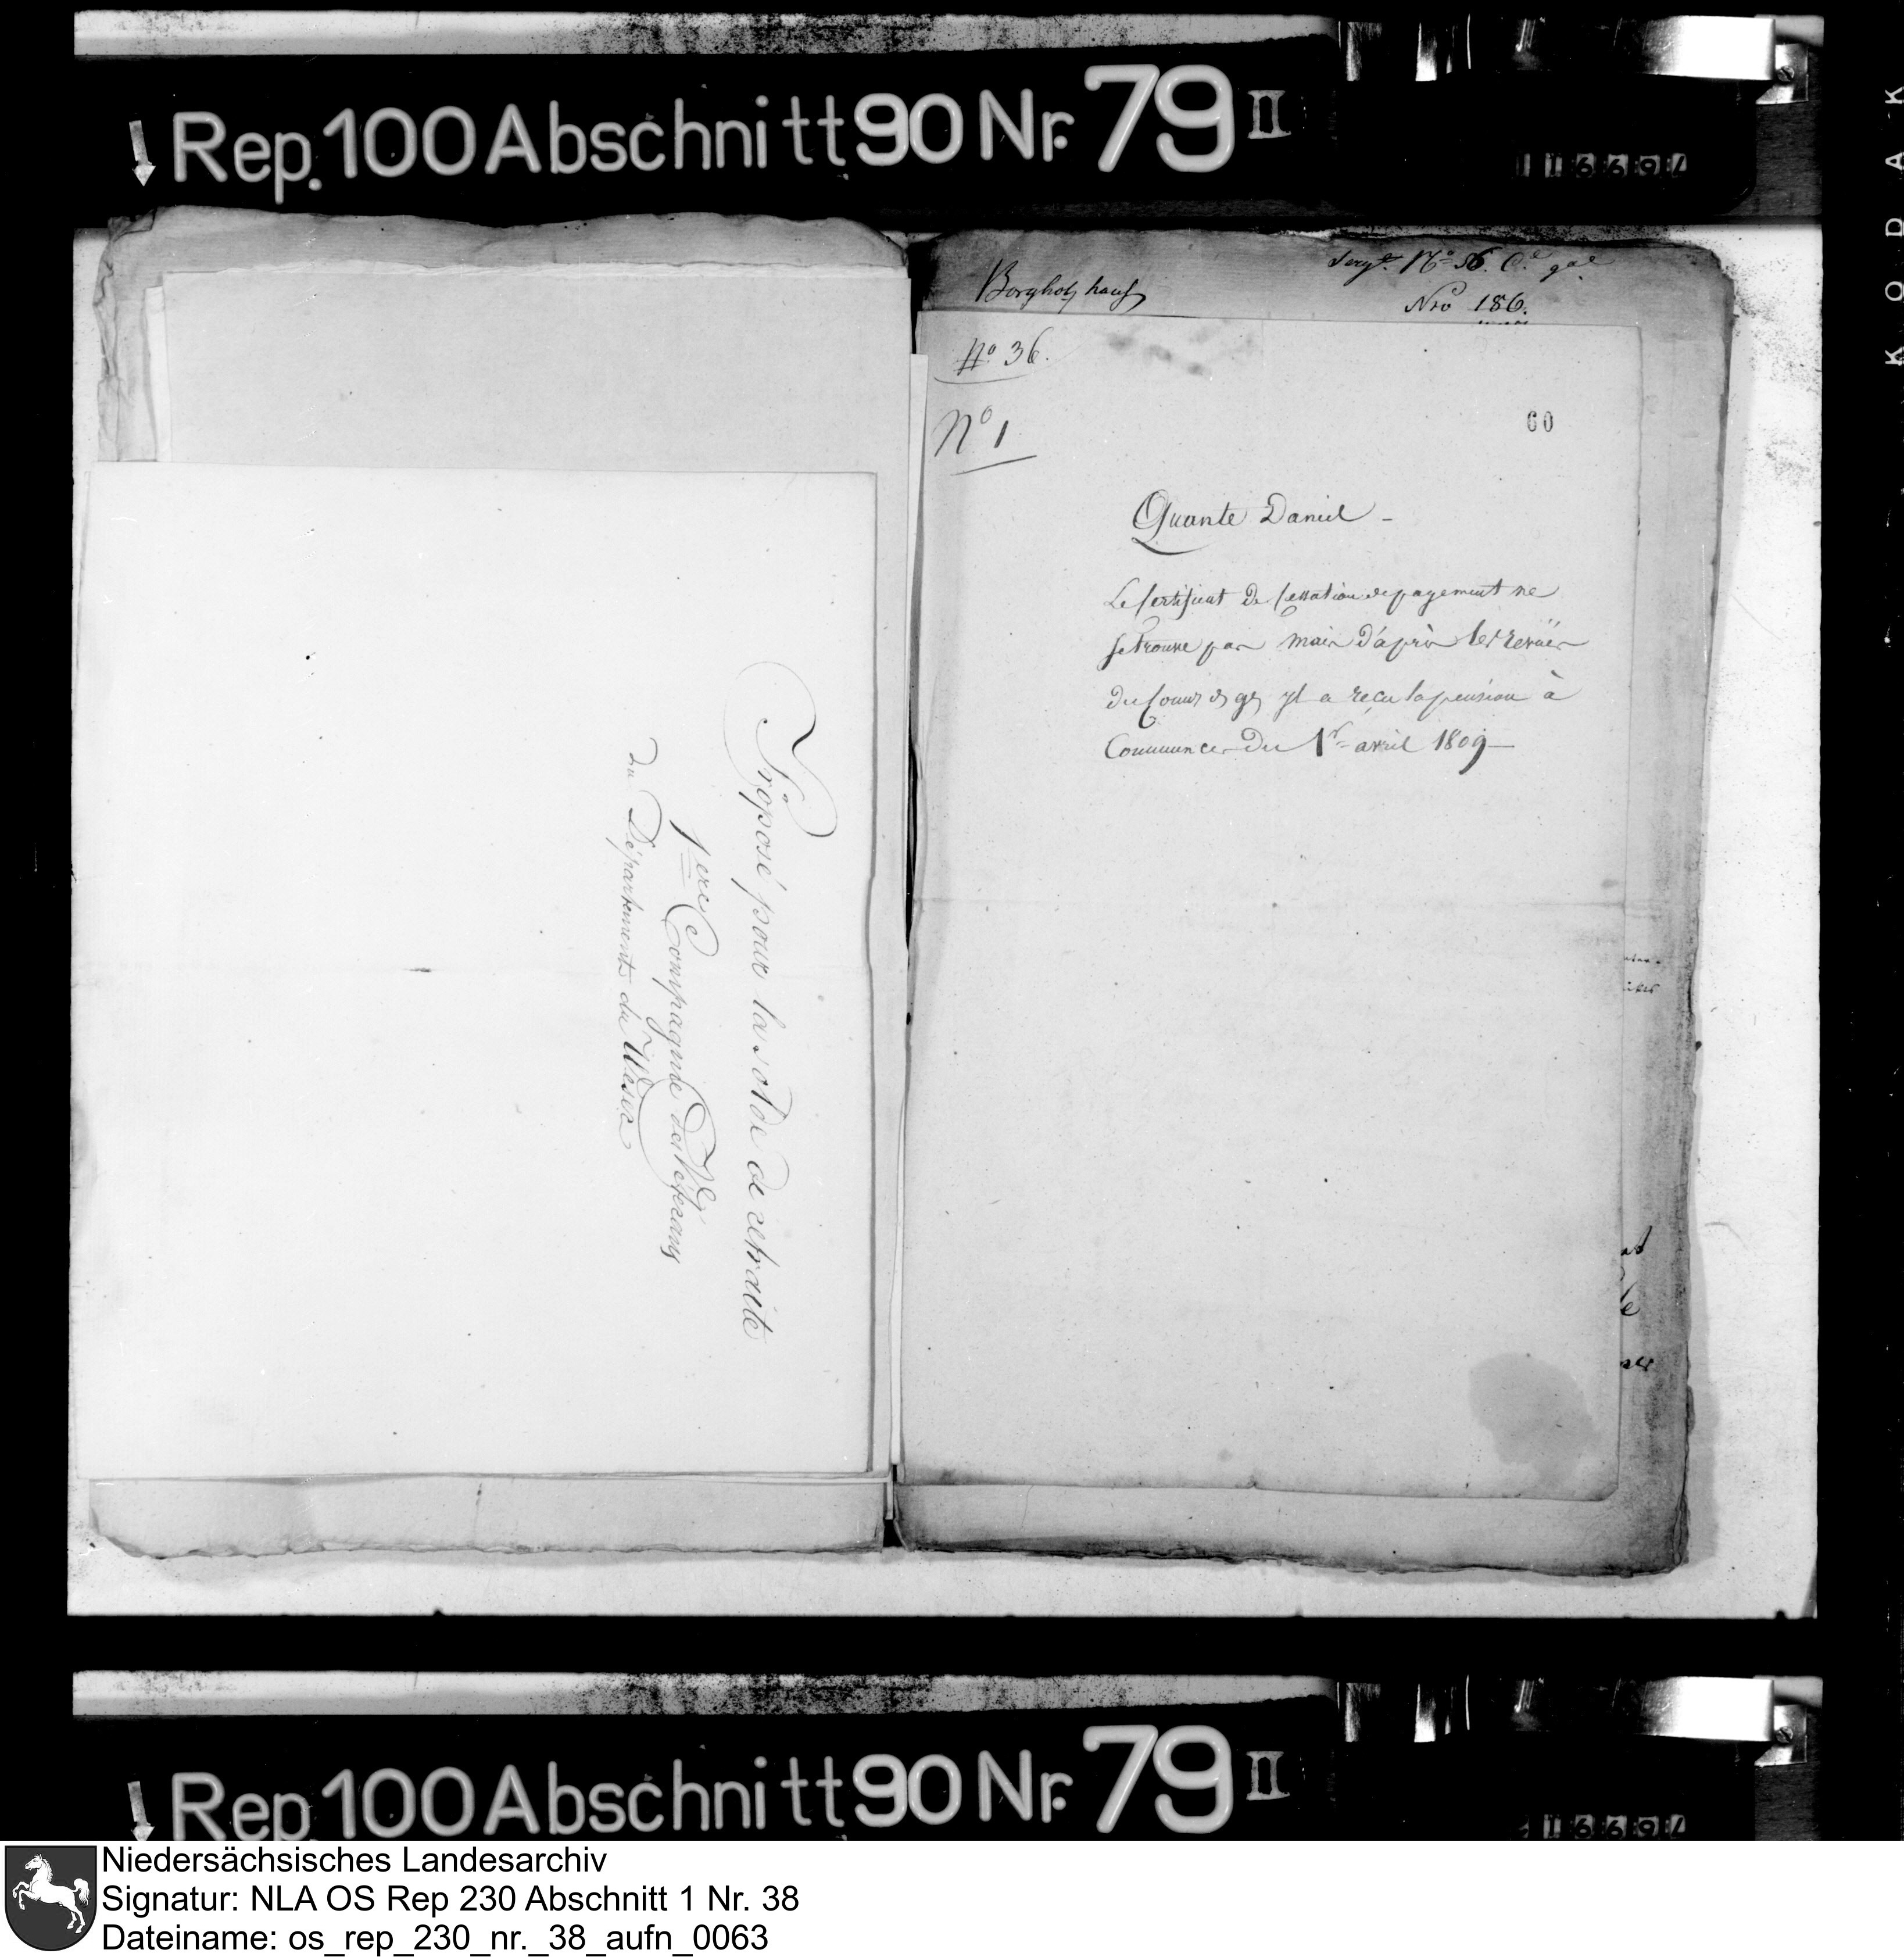 Rep. 100 Abschnitt 90 Nr. 79 II
Proposé pour la solde de retraite
1ere Compagnie des Véterans
du Département du Weser
Nro 186.
No 36.
No 1
60
Quante Daniel -
Le Certificat de Cessation de payement ne
se trouve pas mais d'après les revües
du a reçu la pension à
Commencer du 1r avril 1809
KODAK
Rep. 100 Abschnitt 90 Nr. 79 II
Niedersächsisches Landesarchiv
Signatur: NLA OS Rep 230 Abschnitt 1 Nr. 38
Dateiname: os_rep_230_nr._38_aufn_0063